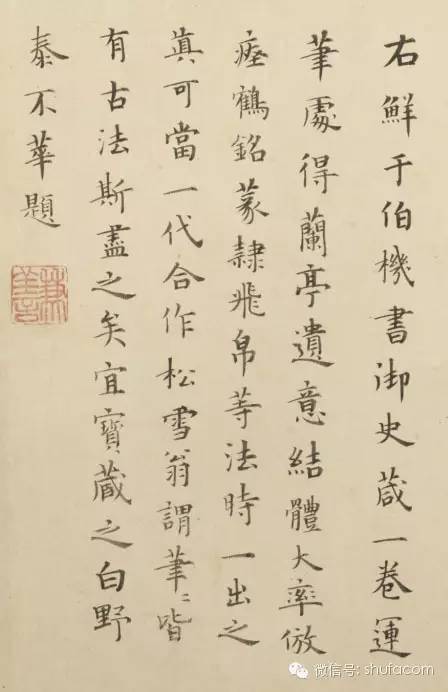 右鮮于伯機書御史葴一卷運
筆處得蘭亭遺意結體大率倣
瘞鶴銘篆隷飛帛等法時一出之
眞可當一代合作松雪翁謂筆〻皆
有古法斯盡之矣宜寶蔵之白野
泰不華題
兼善
微信号: shufacom